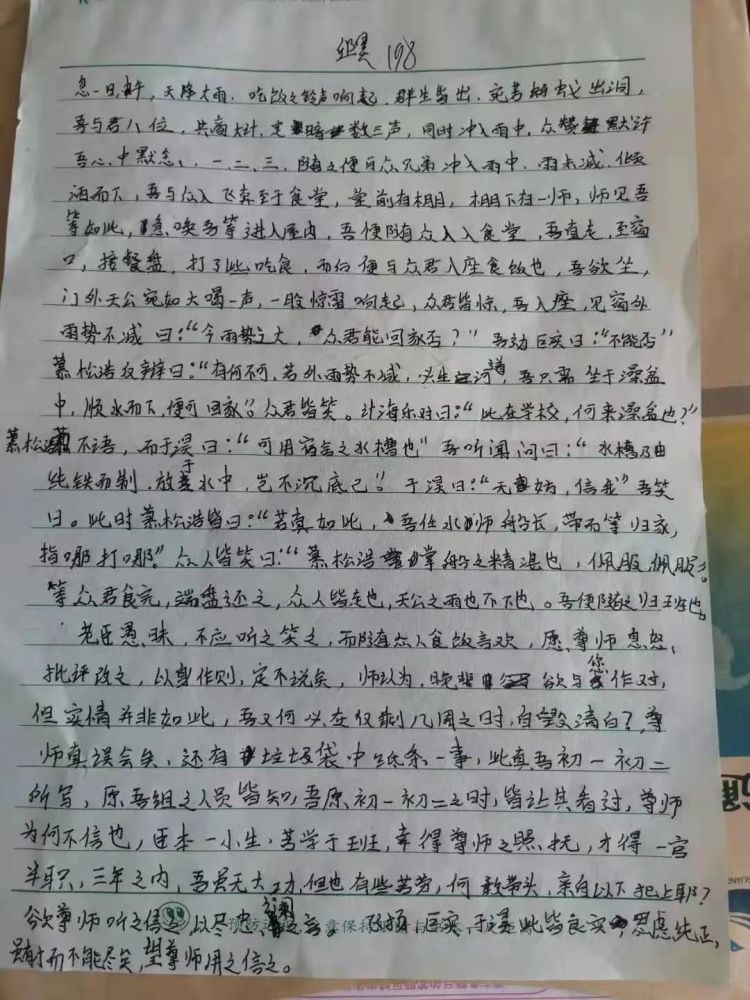 忽一日,中午,天降大雨,吃饭之铃声响起,群生皆出,宛若蚂蚁出洞,
吾与君八位,共商大计,定暗数三声,同时冲入雨中,众默许
吾心中默念,一、二、三,随之便与众兄弟冲入雨中,雨未减,倾
洒而下,吾与众人飞奔至于食堂,堂前有棚,棚下有一师,师见吾
等如此,急唤吾等进入屋内,吾便随众人入食堂,吾直走,至窗
口,接餐盘,打了些吃食,而后便与众君入座食饭也,吾欲坐,
门外天公宛如大喝一声,一股惊雷响起,众君皆惊,吾入座,见窗外
雨势不减曰:“今雨势之大,众君能回家否?”吾幼巨实曰:“不能否”
慕松浩反辩曰:“有何不可,若外雨势不减,必生河道,吾只需坐于澡盆
中,顺水而下,便可回家”。众君皆笑。计海乐对曰:“此在学校,何来澡盆也?”
慕松浩不语,而于淏曰:“可用宿舍之水槽也”吾听闻问曰:“水槽乃由
纯铁而制,放于水中,岂不沉底已”。于淏曰:“无妨,信我”吾笑
曰。此时慕松浩皆曰:“若真如此,吾任水师船长,带而等归家,
指哪打哪”。众人皆笑曰:“慕松浩掌船之精湛也,佩服佩服”。
等众君食完,端盘还之,众人皆走也,天公之雨也不下也。吾便随之归班也
老臣愚昧,不应听之笑之,而随众人食饭言欢,愿尊师息怒,
批评改之,以身作则,定不说矣,师以为,晚辈欲与您作对,
但实情并非如此,吾又何必在仅剩几周之时,自毁清白?尊
师真误会矣,还有垃圾袋中纸条一事,此真吾初一初二
所写,原吾组之人员皆知,吾原初一初二之时,皆让其看过,尊师
为何不信也,臣本一小生,苦学于班,幸得尊师之照抚,才得一官
半职,三年之内,吾虽无大功,但也有些苦劳,何敢带头,亲自以下犯上耶?
欲尊师听之信之,以尽忠之言。巨实于淏此皆良实,思虑纯正,
是时而不能尽矣,望尊师用之信之。